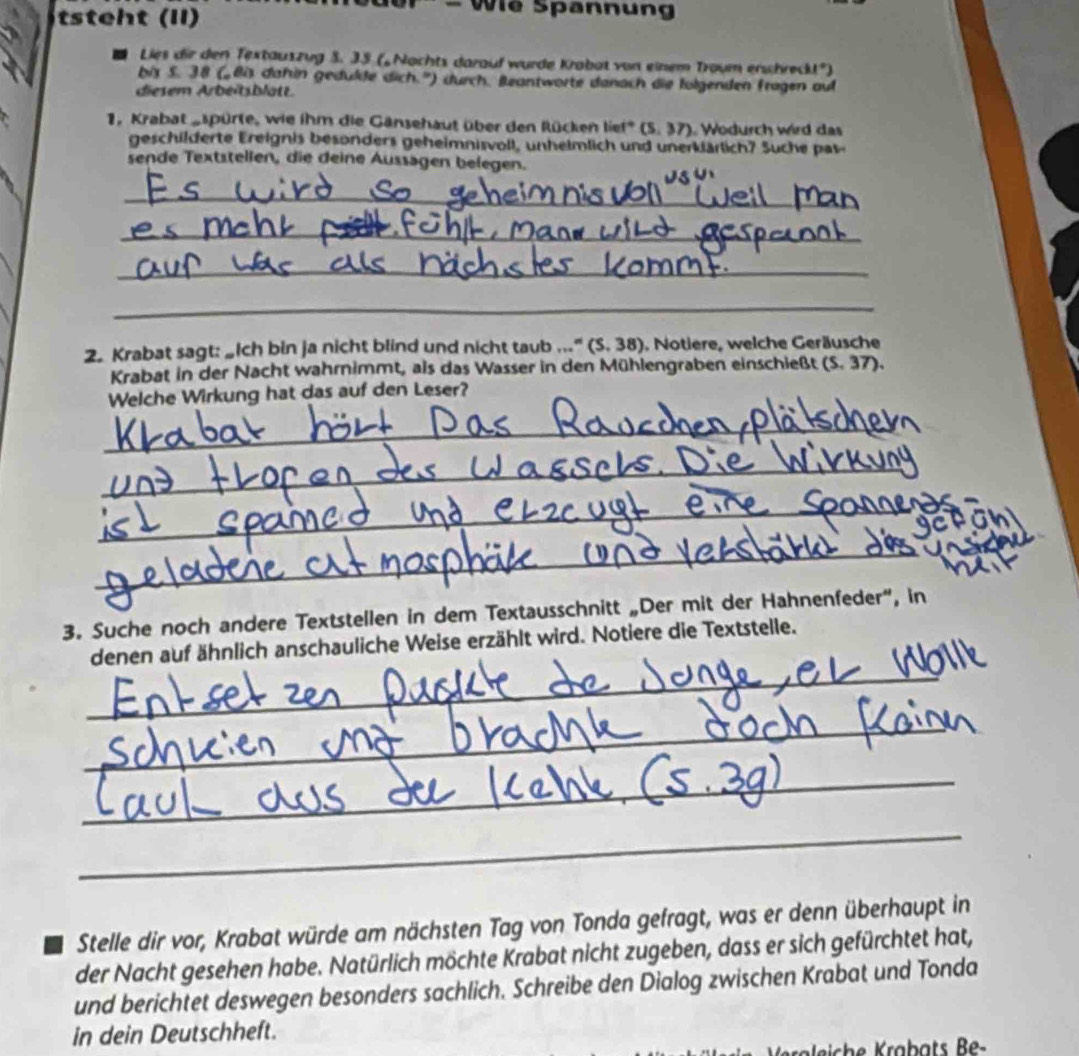 – Wie Spannung
tsteht (II)
Lies dir den Textauszug S. 35 („Nachts darauf wurde Krabat von einem Traum erschreckt“)
bis S. 38 („Bis dahin gedulde dich.“) durch. Beantworte danach die folgenden Fragen auf
diesem Arbeitsblatt.
1. Krabat „spürte, wie ihm die Gänsehaut über den Rücken lief“ (S. 37). Wodurch wird das
geschilderte Ereignis besonders geheimnisvoll, unheimlich und unerklärlich? Suche pas-
sende Textstellen, die deine Aussagen belegen.
Es wird so geheimnisvoll usw. weil man
es mehr fühlt, man wird gespannt
auf was als nächstes kommt.
2. Krabat sagt: „Ich bin ja nicht blind und nicht taub ...“ (S. 38). Notiere, welche Geräusche
Krabat in der Nacht wahrnimmt, als das Wasser in den Mühlengraben einschießt (S. 37).
Welche Wirkung hat das auf den Leser?
Krabat hört Das Rauschen, plätschern
und tropen des Wassers. Die Wirkung
ist spanned und erzeugt eine Spannends
geladene atmosphäre und verstärkt das unsicher
heit
3. Suche noch andere Textstellen in dem Textausschnitt „Der mit der Hahnenfeder“, in
denen auf ähnlich anschauliche Weise erzählt wird. Notiere die Textstelle.
Entsetzen packte de Junge, er wolle
schreien und brachte doch kainen
laut aus der Kehle. (S. 39)
Stelle dir vor, Krabat würde am nächsten Tag von Tonda gefragt, was er denn überhaupt in
der Nacht gesehen habe. Natürlich möchte Krabat nicht zugeben, dass er sich gefürchtet hat,
und berichtet deswegen besonders sachlich. Schreibe den Dialog zwischen Krabat und Tonda
in dein Deutschheft.
Vergleiche Krabats Be-